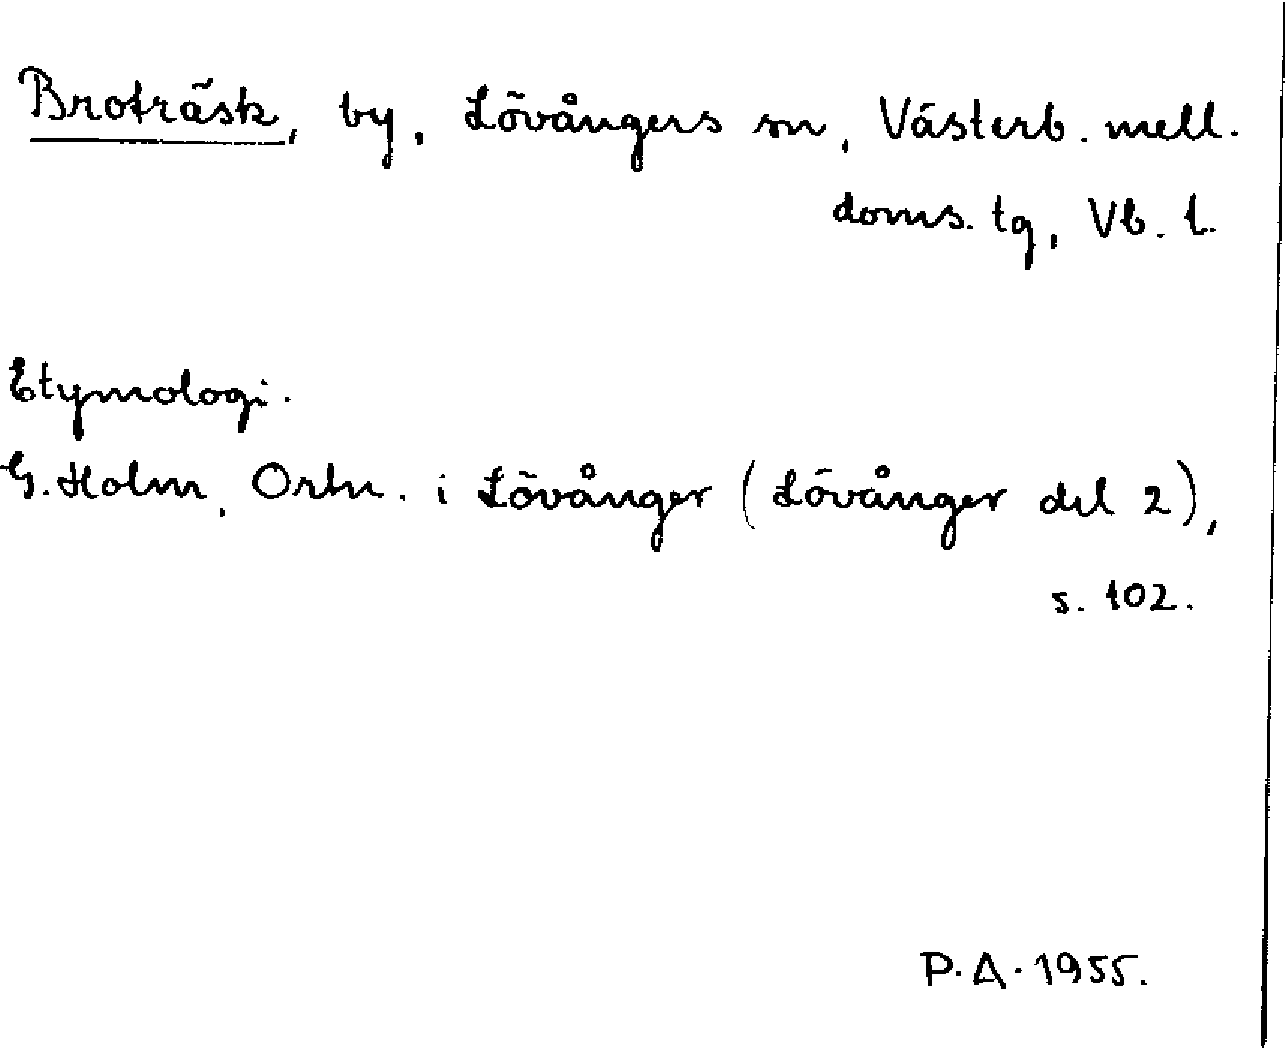 Broträsk, by, Lövångers sn, Västerb. mell.
doms. tg, Vb. l.
Etymologi.
G. Holm, Ortn. i Lövånger (Lövånger del 2),
s. 102.
P. A. 1955.